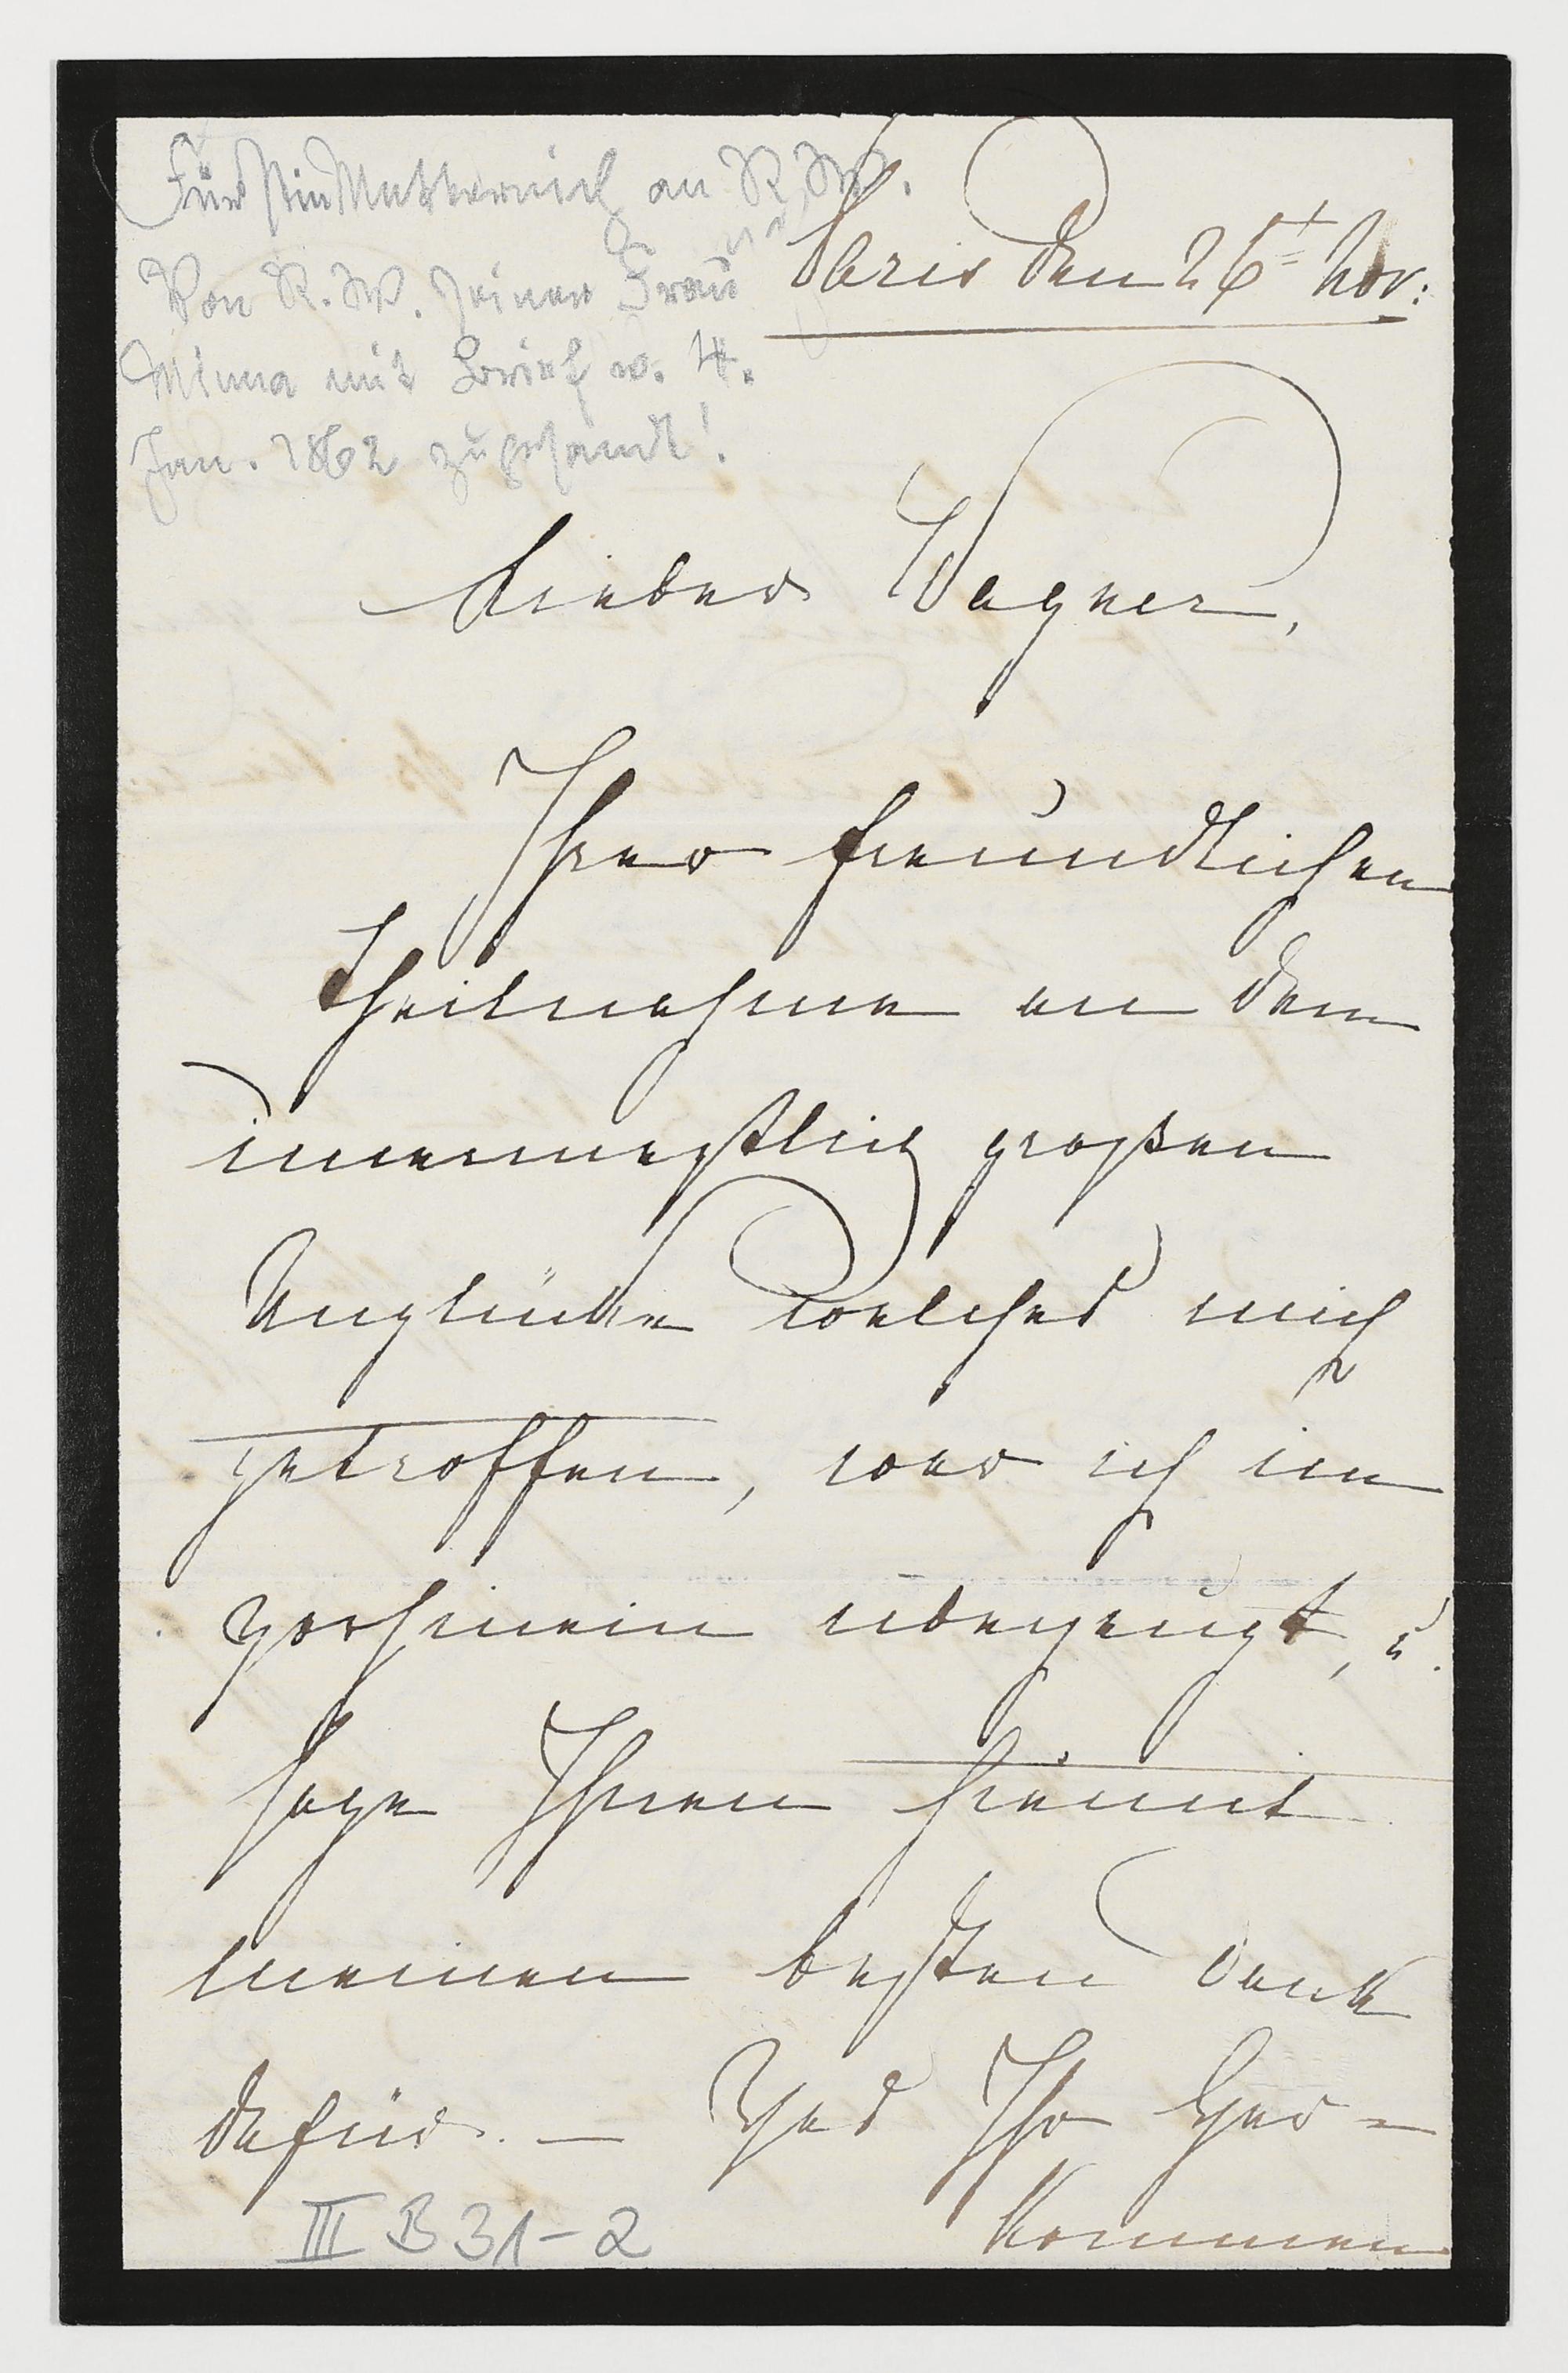 Fürstin Metternich an R. W.
Von R. W. seiner Frau
Minna mit Brief v. 4.
Jan. 1862 zugesandt!
Paris den 26t Nov:
Lieber Wagner,
Ihrer freundlichen
Theilnahme an dem
unermeßlich großen
Unglücke welches mich
getroffen, war ich im
vorhinein überzeugt, u.
sage Ihnen
meinen besten Dank
dafür. — Ihr Her=
kommen
III B 31-2